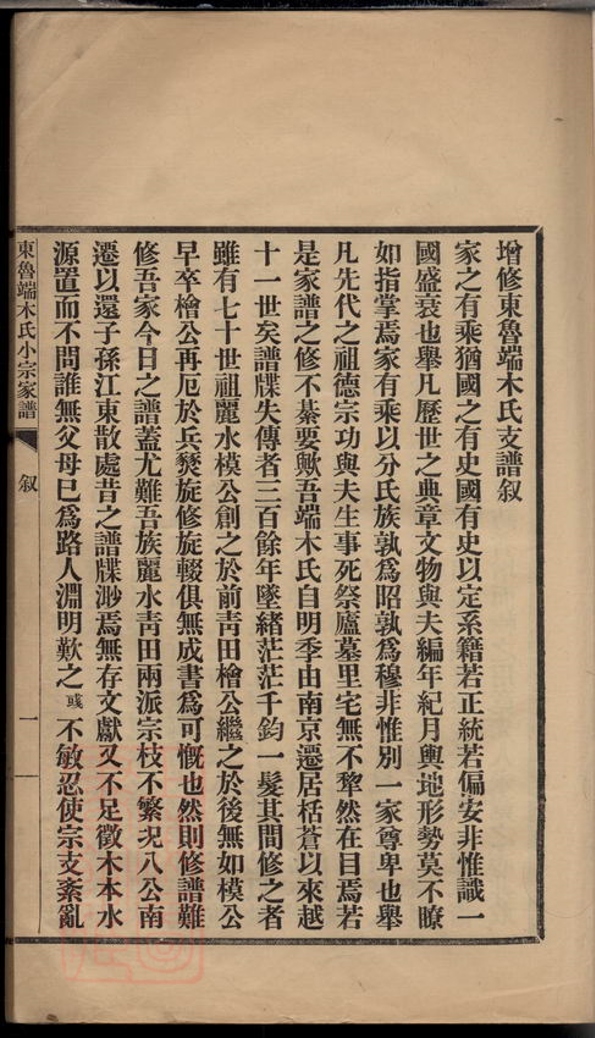 增修東魯端木氏支譜叙
家之有乘猶國之有史國有史以定系籍若正統若偏安非惟識一
國盛衰也舉凡歷世之典章文物與夫編年紀月輿地形勢莫不瞭
如指掌焉家有乘以分氏族孰爲昭孰爲穆非惟別一家尊卑也舉
凡先代之祖德宗功與夫生事死祭廬墓里宅無不犂然在目焉若
是家譜之修不綦要歟吾端木氏自明季由南京遷居栝蒼以來越
十一世矣譜牒失傳者三百餘年墜緒茫茫千鈞一髮其間修之者
雖有七十世祖麗水模公創之於前青田檜公繼之於後無如模公
早卒檜公再厄於兵燹旋修旋輟俱無成書爲可慨也然則修譜難
修吾家今日之譜蓋尤難吾族麗水青田兩派宗枝不繁況八公南
遷以還子孫江東散處昔之譜牒渺焉無存文獻又不足徵木本水
源置而不問誰無父母巳爲路人淵明歎之彧不敏忍使宗支紊亂
東魯端木氏小宗家譜
叙
一